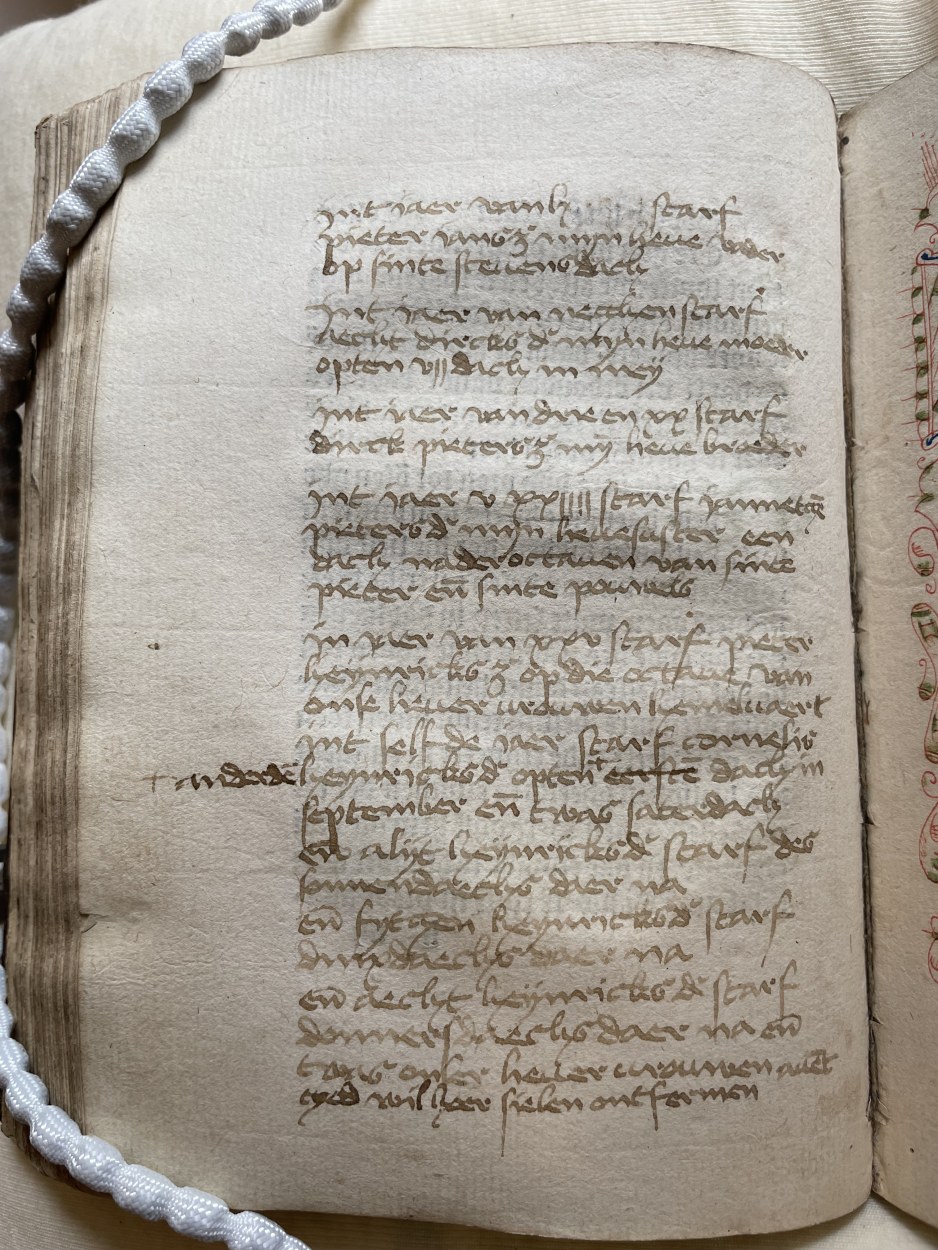 int iaer van starf
pieter iansz mijn lieue vader
op sinte steuens dach
int iaer van starf
aecht dircks dr mijn lieue moeder
opten vij dach in mey
int iaer van drie en xx starf
dirck pietersz mijn lieue broeder
int iaer v xxiiii starf iannetgē
pieters dr mijn lieue suster een
dach nader octauen van sinte
pieter eñ sinte pouwels
in iaer van xxv starf pieter
heynricksz op die octaue van
onse lieuer vrouwen hemeluaert
int selfde iaer starf cornelis
+ anderdē heynricks dr opten eersten dach in
september eñ twas saterdach
eñ alijt heynricks dr starf des
sonnendaechs daer na
eñ fytgen heynricks dr starf
dinxdaechs daer na
eñ aecht heynricks dr starf
donnersdaechs daer na eñ
twas onser lieuer vrouwen auēt
god wil haer sielen ontfermen